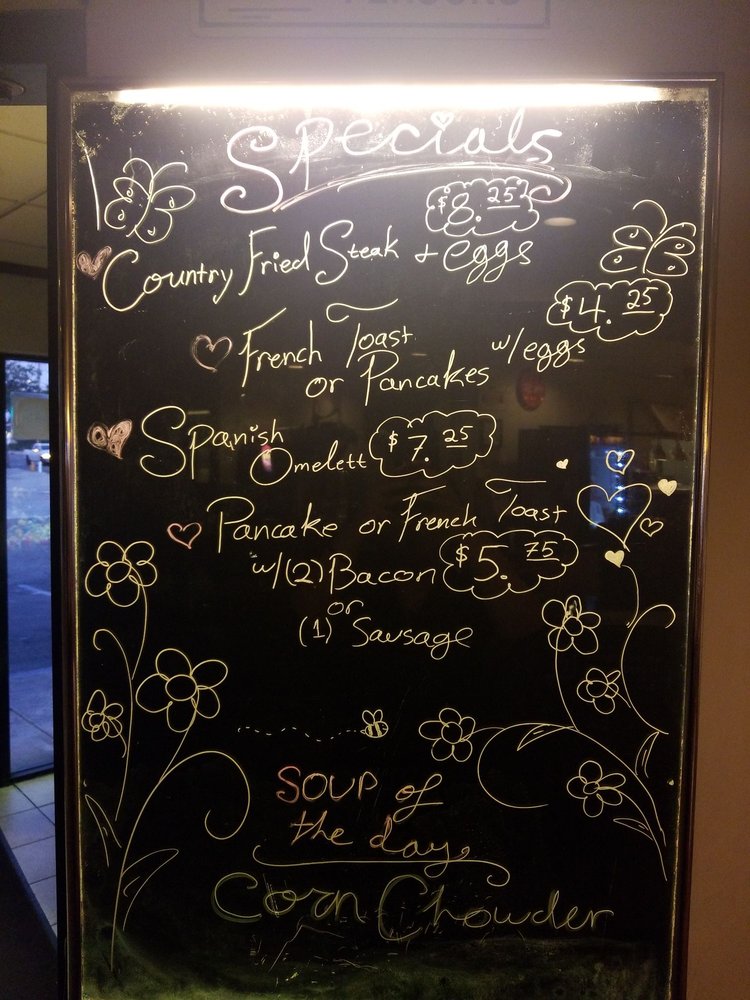 Specials
$8.25
Country Fried Steak + eggs
$4.25
French Toast w/eggs
or Pancakes
Spanish
Omelett $7.25
Pancake or French Toast
w/(2) Bacon $5.75
or
(1) Sausage
Soup of
the day
Corn Chowder